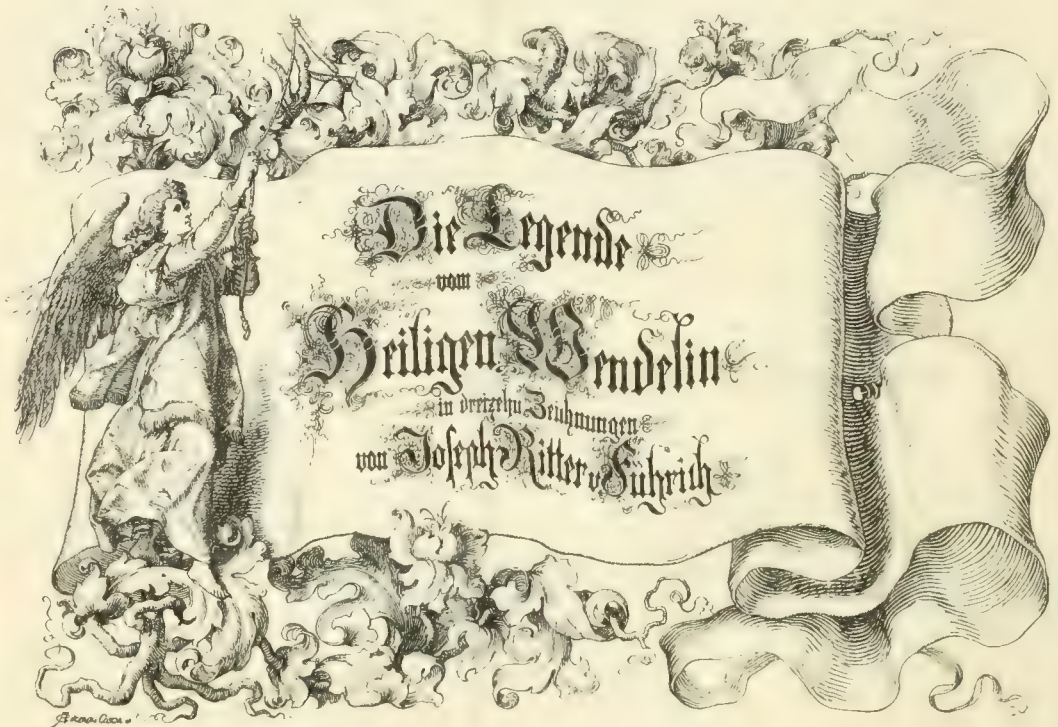 Die Legende
vom
Heiligen Wendelin
in dreizehn Zeichnungen
von Joseph Ritter v. Führich